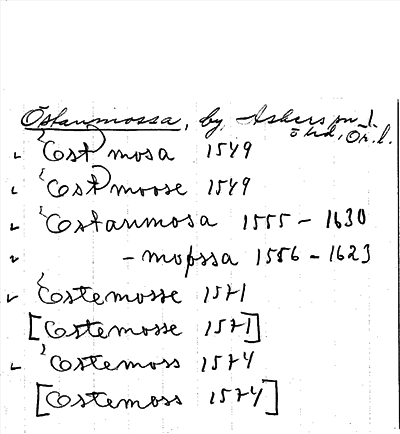 Östanmossa, by,
Ost mosa 1549
Ost moose 1549
Ostanmosa 1555 – 1630
– mossa 1556 – 1623
Ostemosse 1571
[Ostemosse 1571]
Ostemoss 1574
[Ostemoss 1574]